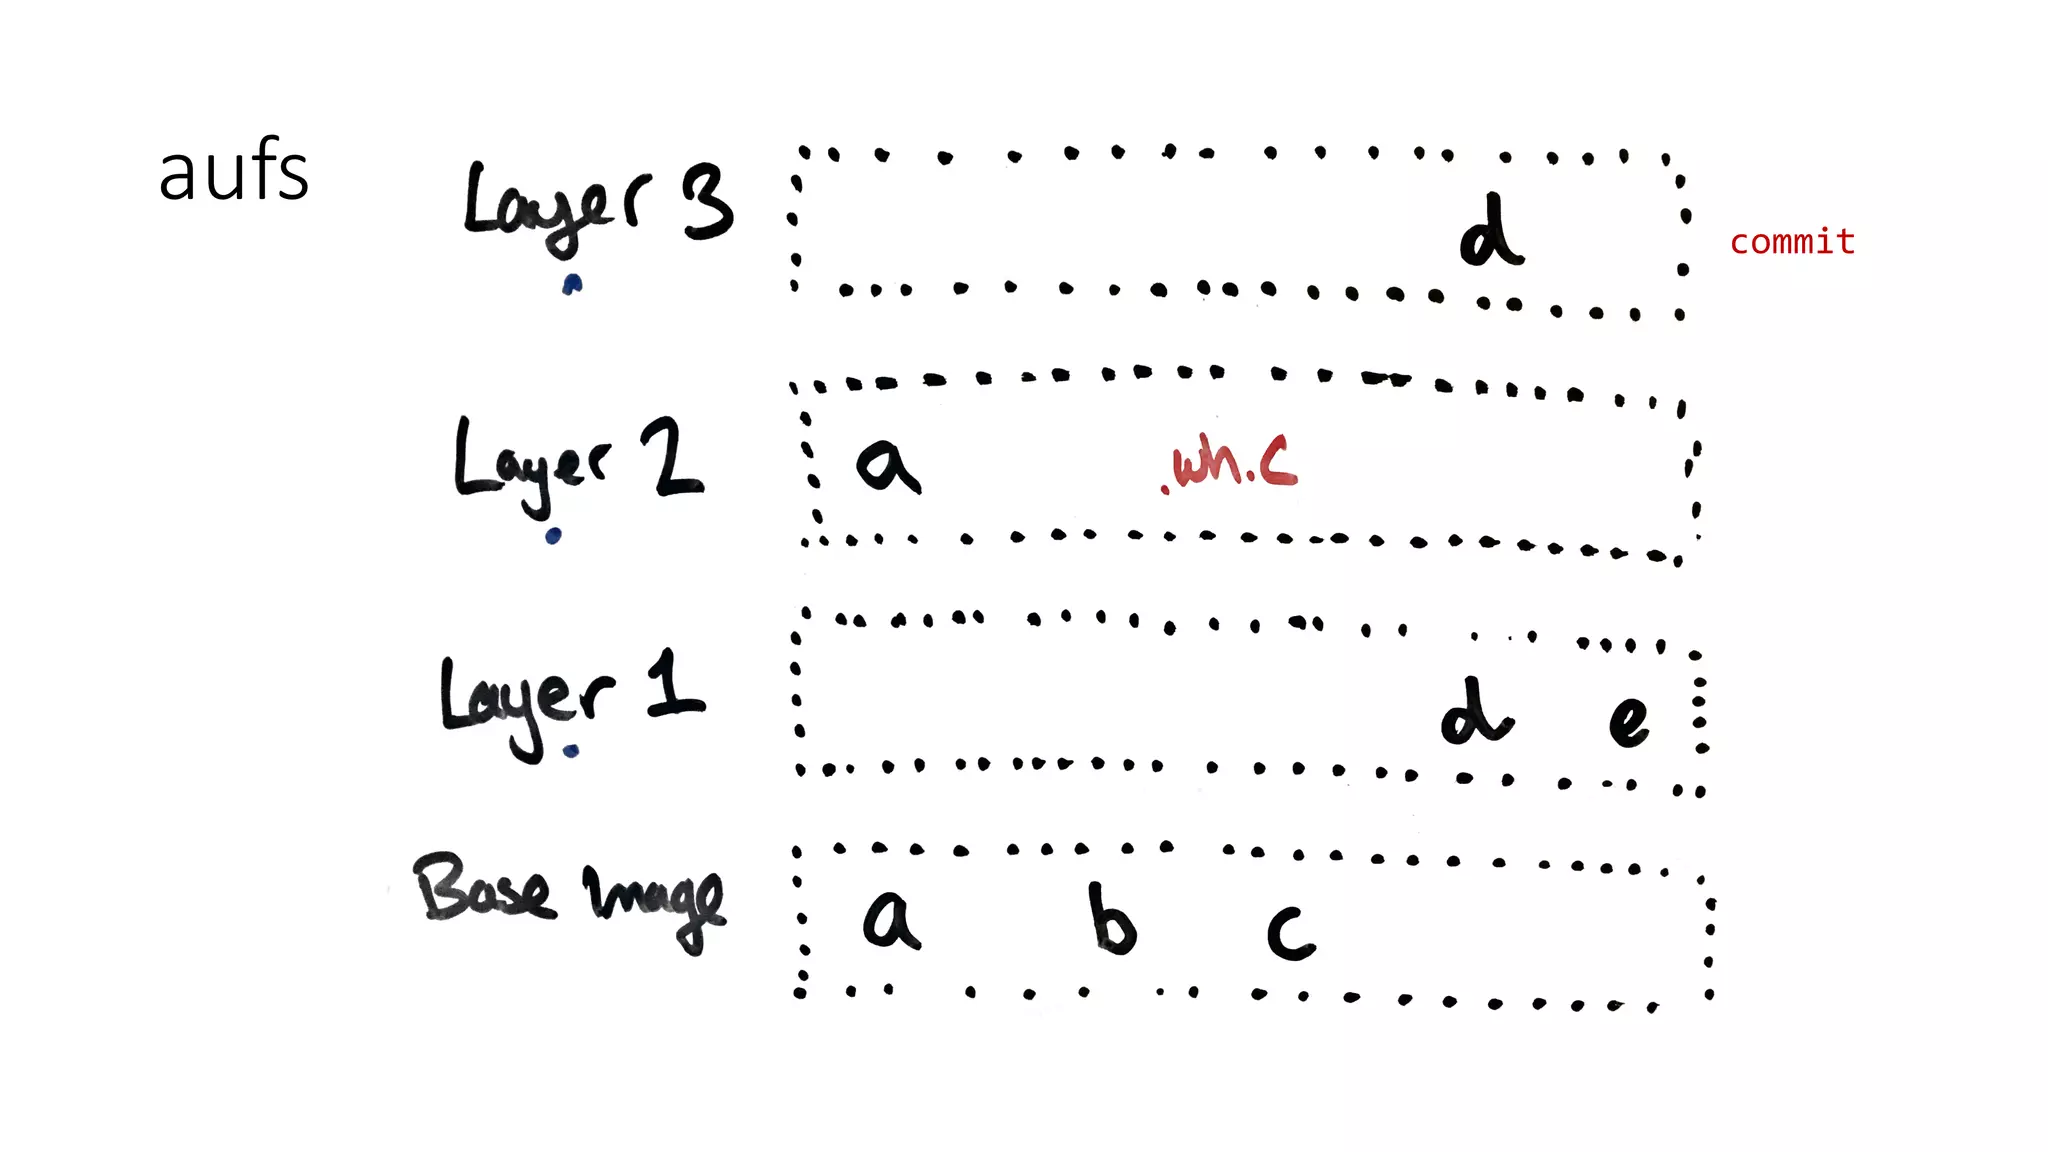 aufs
Layer 3
d
commit
Layer 2
a .wh.c
Layer 1
d e
Base Image
a b c